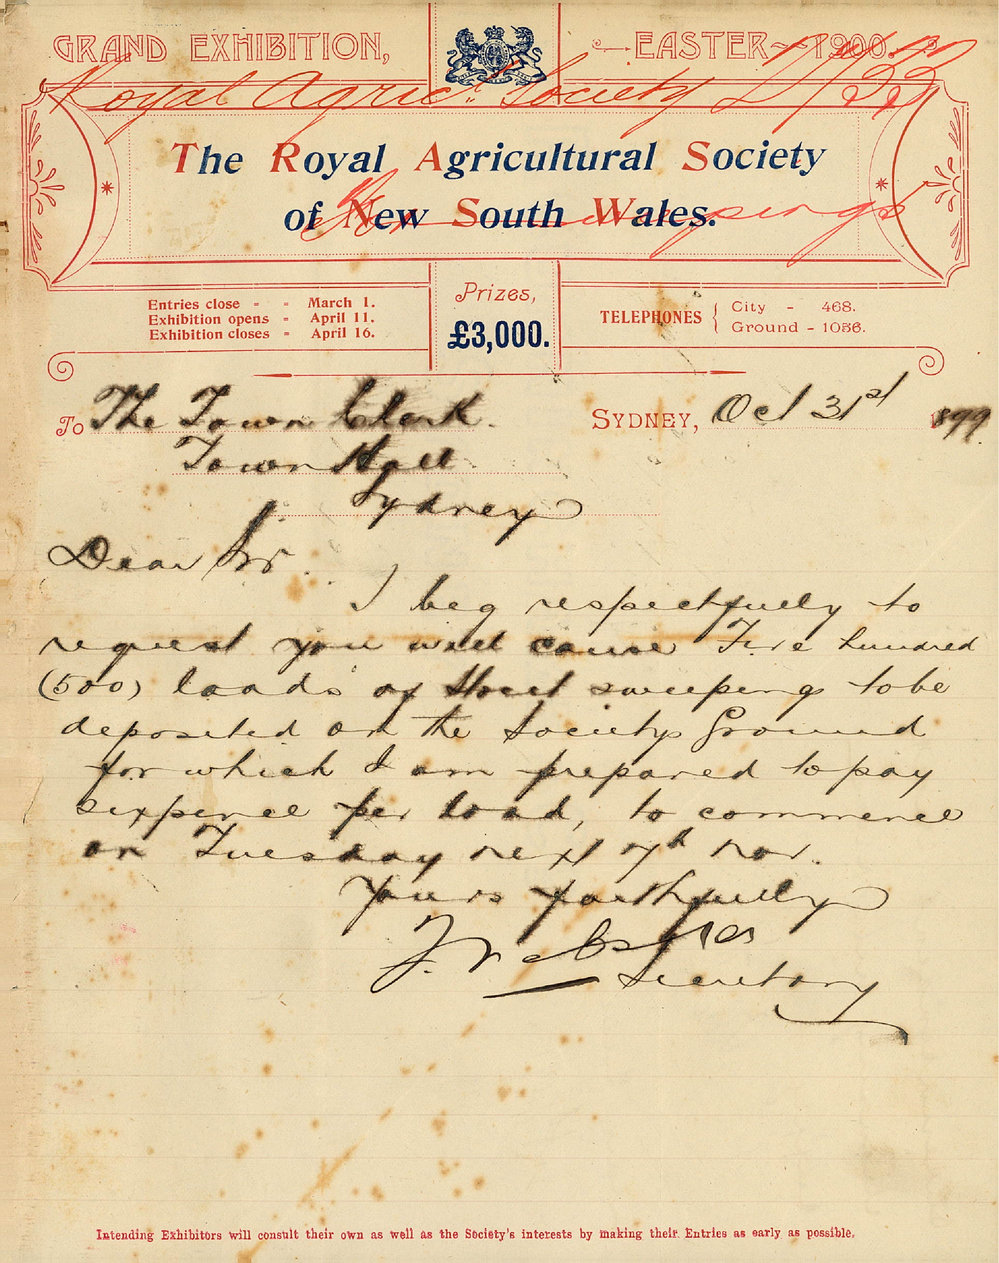 GRAND EXHIBITION, EASTER 1900.
Royal Agricl. Society
The Royal Agricultural Society
of New South Wales.
sweepings
Entries close - - March 1.
Exhibition opens - April 11.
Exhibition closes - April 16.
Prizes,
£3,000.
TELEPHONES
City - 468.
Ground - 1056.
To The Town Clerk.
Town Hall
Sydney
SYDNEY, Oct 31st 1899
Dear Sir.
I beg respectfully to
request you will cause Five hundred
(500) loads of Street sweepings to be
deposited on the Society's Ground
for which I am prepared to pay
sixpence per load, to commence
on Tuesday next 7th Nov.
Yours faithfully
F. Webster
Secretary
Intending Exhibitors will consult their own as well as the Society's interests by making their Entries as early as possible.